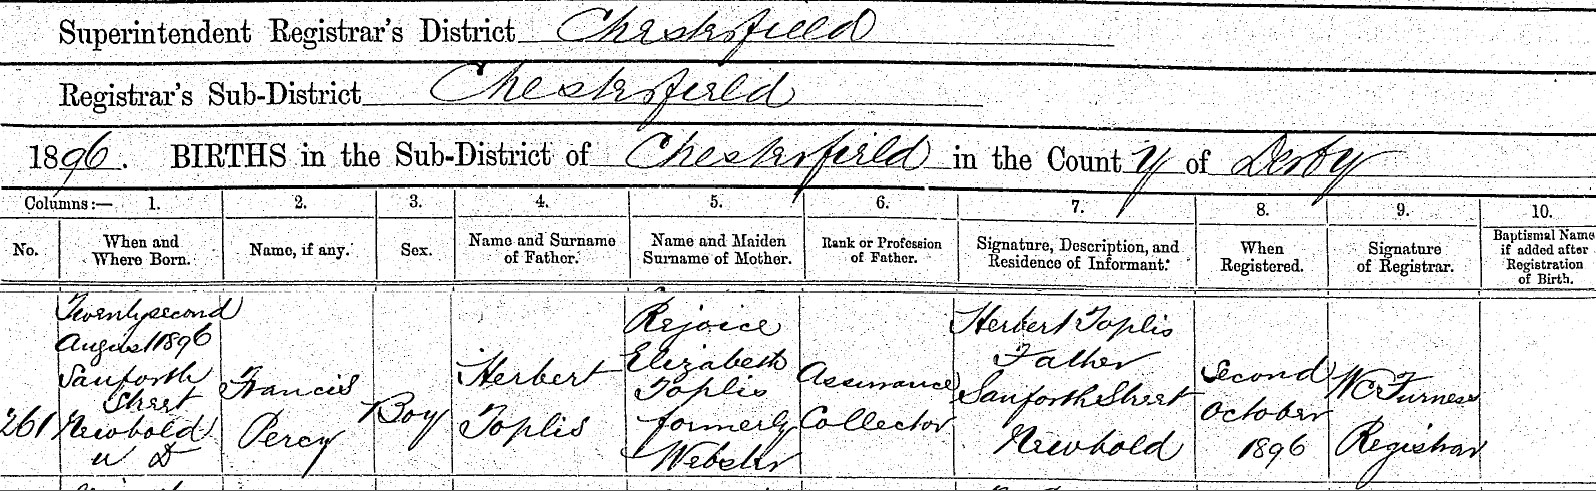 Superintendent Registrar's District Chesterfield
Registrar's Sub-District Chesterfield
1896. BIRTHS in the Sub-District of Chesterfield in the County of Derby
Columns:— 1. 2. 3. 4. 5. 6. 7. 8. 9. 10.
No.
When and
Where Born.
Name, if any.
Sex.
Name and Surname
of Father.
Name and Maiden
Surname of Mother.
Rank or Profession
of Father.
Signature, Description, and
Residence of Informant.
When
Registered.
Signature
of Registrar.
Baptismal Name
if added after
Registration
of Birth.
261
Twenty second
August 1896
Sanforth
Street
Newbold
u D
Francis
Percy
Boy
Herbert
Toplis
Rejoice
Elizabeth
Toplis
formerly
Webster
Assurance
Collector
Herbert Toplis
Father
Sanforth Street
Newbold
Second
October
1896
W C Furness
Registrar